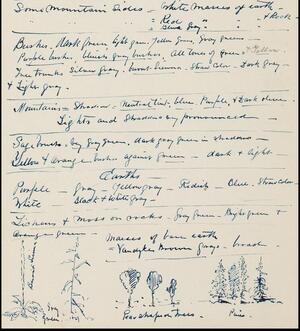 Some Mountain Sides – White Masses of earth –
" Red " " & Rock
" Blue Gray "
Bushes. dark Green, light gren. Yellow Gray, Gray green –
Purple bushes, blueish gray bushes. All tones of Green & Yellow
Tree trunks Silver Gray, burnt brown – Straw Color – Dark Gray –
& Light Gray.
Mountains = Shadow – Neutral tint – blue, Purple, & Dark blue.
Lights and Shadows by pronounced –
Sage brush – by Gray Green, dark gray green in shadows –
Yellow & Orange bushes against green – dark & light
Earths
Purple – Gray – Yellow gray – Redish – Blue – Straw Color
White Black & White Gray –
Lichens & Moss on rocks – Gray Green – Bright green &
Orange – green –
Masses of bare earth –
Vandyke Brown grays – broad –
Gray
Green
Pear shaped trees –
Pines